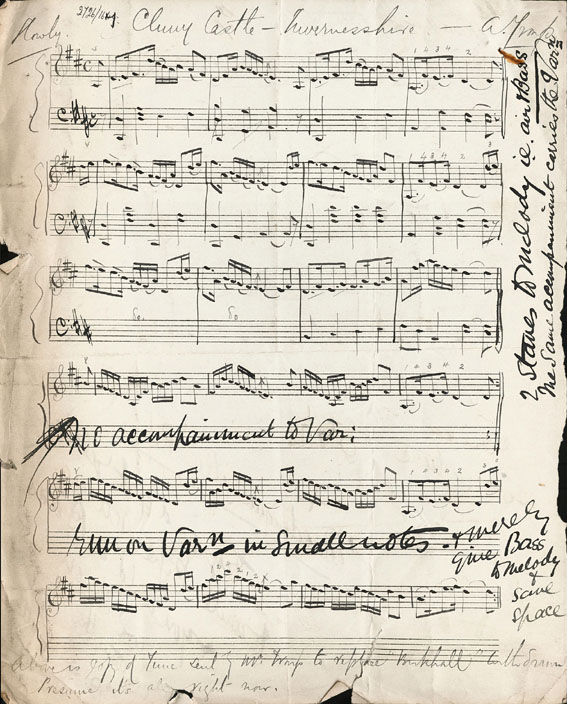 Slowly.
Cluny Castle – Invernesshire – A. Troup
1 3 4 4 2
2 staves to melody i.e. air & Bass
the same accompaniment carries the Varn
1 4 3 4 2
1 2 3 4 2
No accompaniment to Var:
1 3 4 4 2
run on Varn in small notes. & merely
give Bass
to melody
&
save
space
Above is copy of Tune sent by Mr. Troup to replace "Birkhall"
Presume it's all right now.